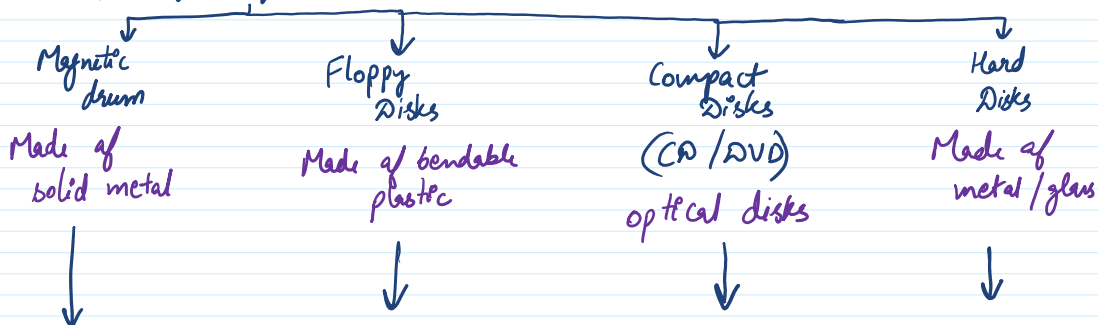 Magnetic
drum
Made of
solid metal
Floppy
Disks
Made of bendable
plastic
Compact
Disks
(CD/DVD)
optical disks
Hard
Disks
Made of
metal/glass